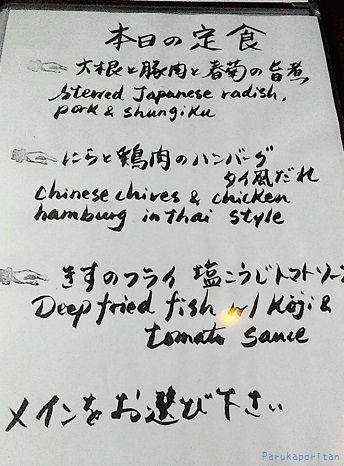 本日の定食
大根と豚肉と春菊の旨煮
Sterred Japanese radish,
pork & shungiku
にらと鶏肉のハンバーグ
タイ風だれ
Chinese chives & chicken
hamburg in thai style
きすのフライ 塩こうじトマトソース
Deep fried fish w/ Koji &
tomato sauce
メインをお選び下さい
Parukaporitan